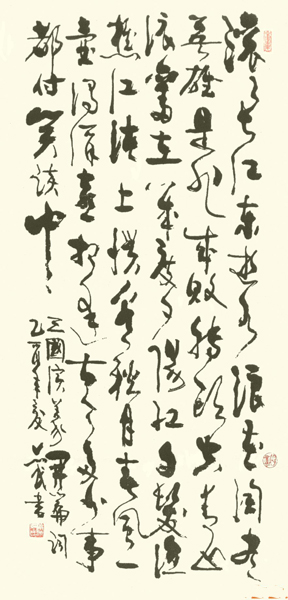 滚滚长江东逝水浪花淘尽
英雄是非成败转头空青山
依旧在几度夕阳红白髮渔
樵江渚上惯看秋月春风一
壶浊酒喜相逢古今多少事
都付笑谈中
三國演义开篇词
乙酉年夏
书